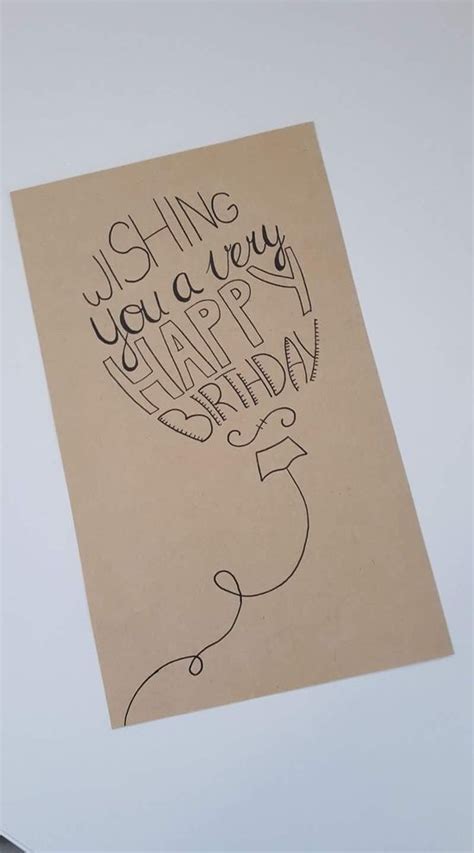 WISHING
you a very
HAPPY
BIRTHDAY